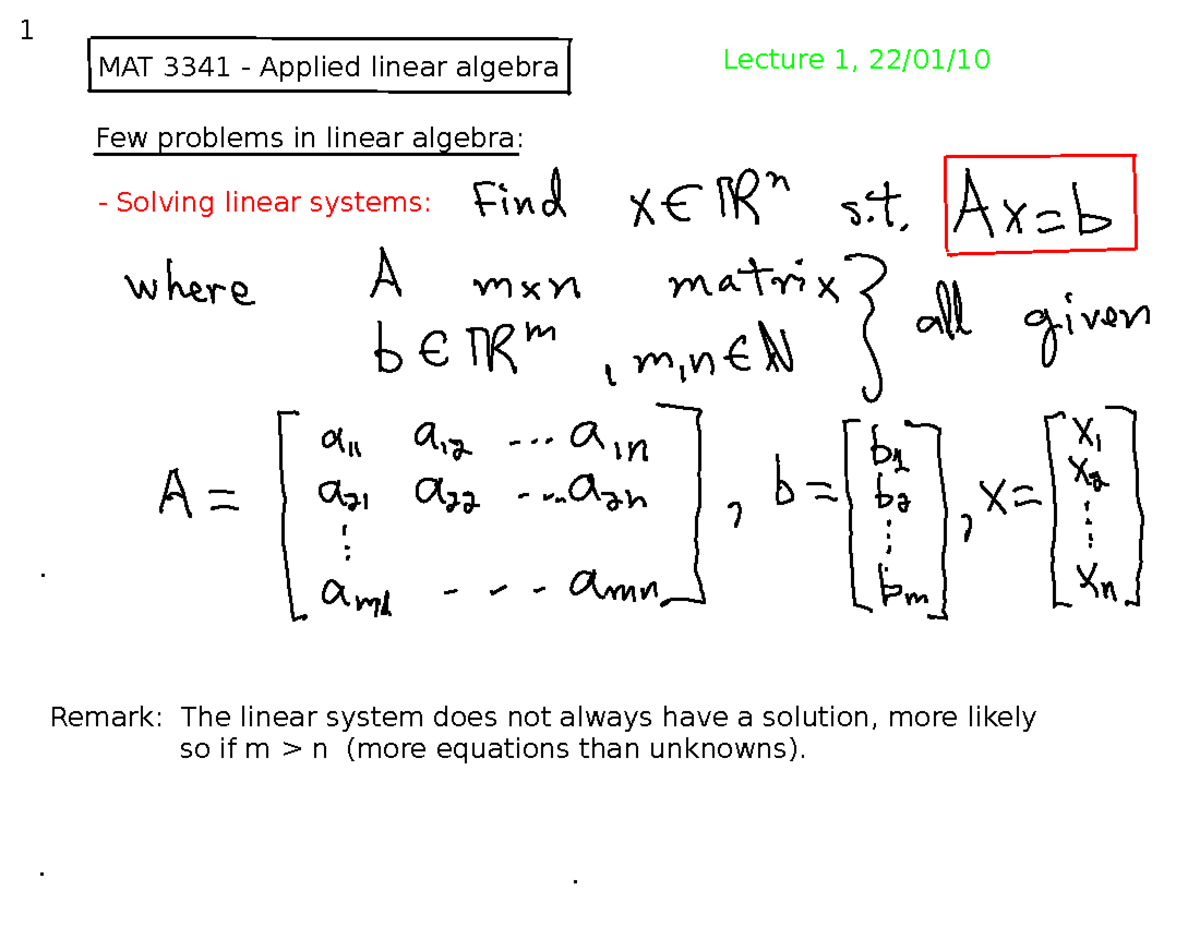 1
MAT 3341 - Applied linear algebra
Lecture 1, 22/01/10
Few problems in linear algebra:
- Solving linear systems: Find x ∈ ℝⁿ s.t. Ax=b
where A m×n matrix } all given
b ∈ ℝᵐ , m,n ∈ ℕ
A = [ a₁₁ a₁₂ ... a₁ₙ
a₂₁ a₂₂ ... a₂ₙ
⋮
aₘ₁ - - - aₘₙ ] , b = [ b₁ b₂ ⋮ bₘ ] , x = [ x₁ x₂ ⋮ xₙ ]
Remark: The linear system does not always have a solution, more likely
so if m > n (more equations than unknowns).